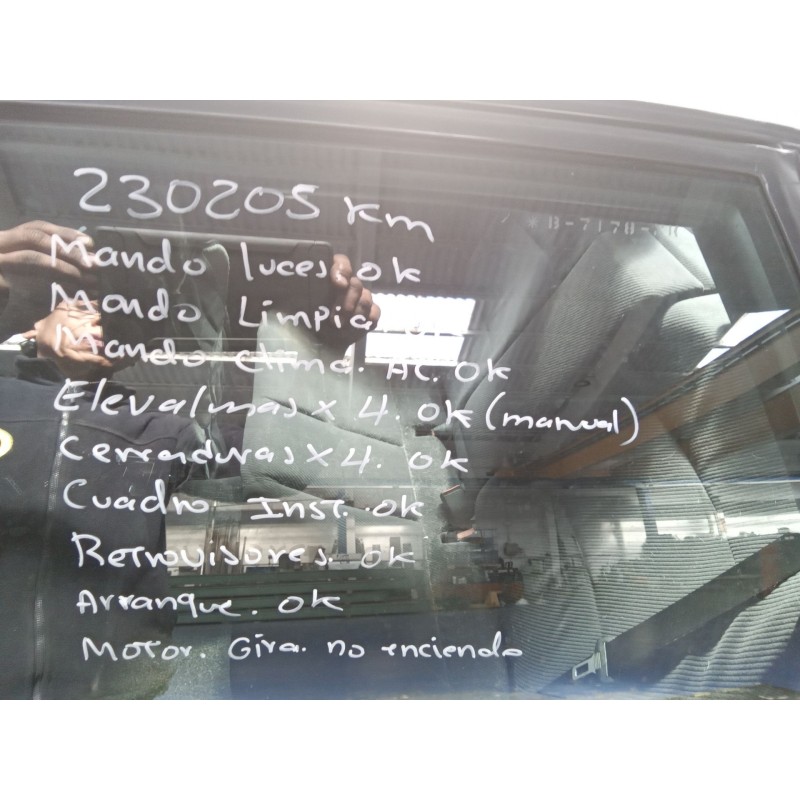 230205 km
B-7178-
Mando luces. ok
Mando Limpia
Mando Clima. AC. OK
Elevalunas x 4. ok (manual)
Cerraduras x 4. ok
Cuadro Inst. ok
Retrovisores. ok
Arranque. ok
Motor. Gira. no enciendo